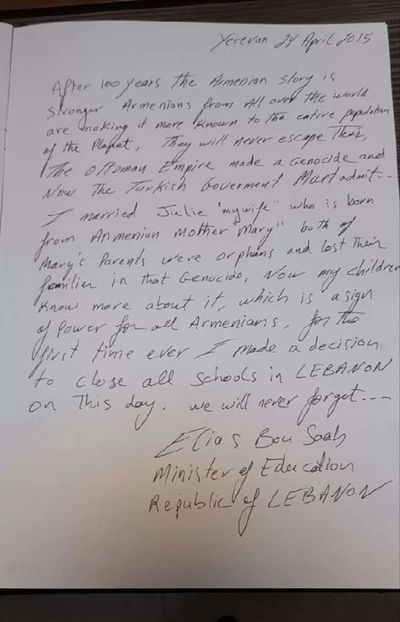 Yerevan 24 April 2015
After 100 years the Armenian story is
stronger Armenians from all over the world
are making it more known to the entire population
of the Planet, They will never escape this,
The Ottoman Empire made a Genocide and
Now The Turkish Goverment Must admit---
I married Julie "my wife" who is born
from Armenian Mother "Mary" both of
Mary's Parents were orphans and lost their
families in that Genocide, Now my children
know more about it, which is a sign
of Power for all Armenians, for the
first time ever I made a decision
to close all Schools in LEBANON
on This day. we will never forget---
Elias Bou Saab
Minister of Education
Republic of LEBANON